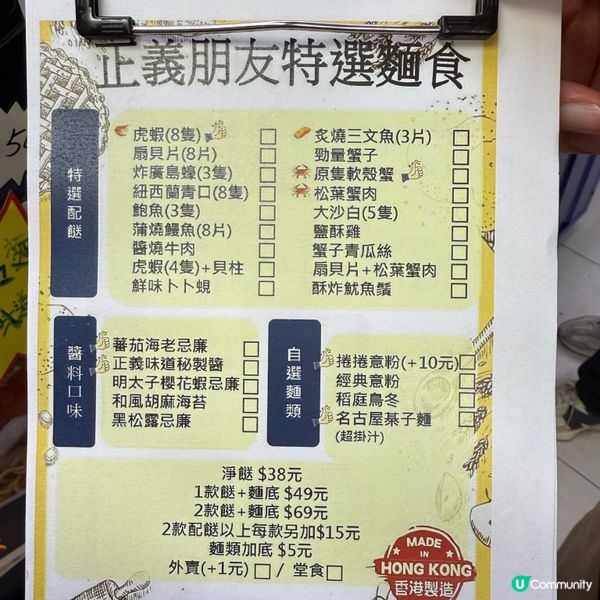 正義朋友特選麵食
特選配餸
虎蝦(8隻)
扇貝片(8片)
炸廣島蠔(3隻)
紐西蘭青口(8隻)
鮑魚(3隻)
蒲燒鰻魚(8片)
醬燒牛肉
虎蝦(4隻)+貝柱
鮮味卜卜蜆
炙燒三文魚(3片)
勁量蟹子
原隻軟殼蟹
松葉蟹肉
大沙白(5隻)
鹽酥雞
蟹子青瓜絲
扇貝片+松葉蟹肉
酥炸魷魚鬚
醬料口味
蕃茄海老忌廉
正義味道秘製醬
明太子櫻花蝦忌廉
和風胡麻海苔
黑松露忌廉
自選麵類
捲捲意粉(+10元)
經典意粉
稻庭烏冬
名古屋棊子麵
(超掛汁)
淨餸 $38元
1款餸+麵底 $49元
2款餸+麵底 $69元
2款配餸以上每款另加$15元
麵類加底 $5元
外賣(+1元) / 堂食
MADE
IN
HONG KONG
香港製造
U Community